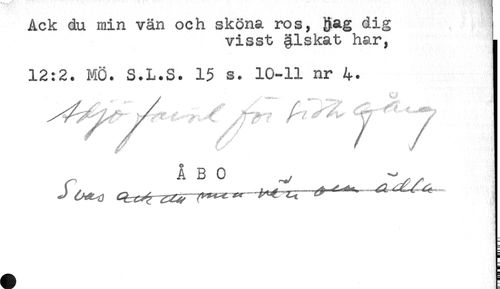 Ack du min vän och sköna ros, jag dig
visst älskat har,
12:2. MÖ. S.L.S. 15 s. 10-11 nr 4.
Adjö farväl för sista gång
Å B O
Svar ack du min vän och ädla